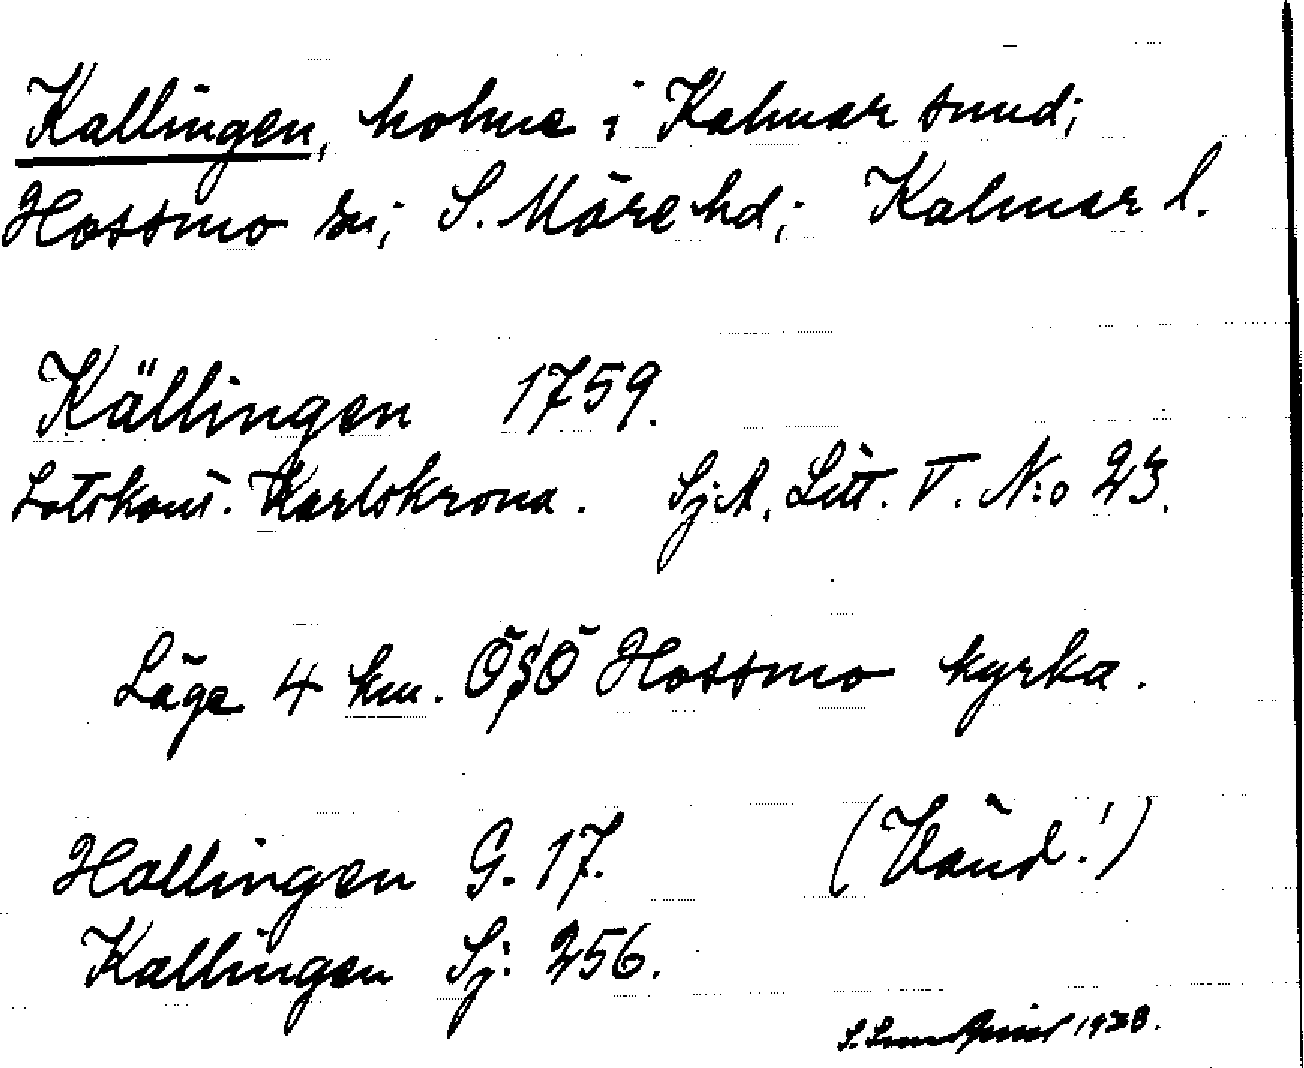 Kallingen, holme i Kalmar sund;
Hossmo sn; S. Möre hd; Kalmar l.
Källingen 1759.
Lotskont. Karlskrona. Sj.A. Litt. V. N:o 23.
Läge 4 km. ÖSÖ Hossmo kyrka.
Hallingen G. 17. (Vänd!)
Kallingen Sj. 256.